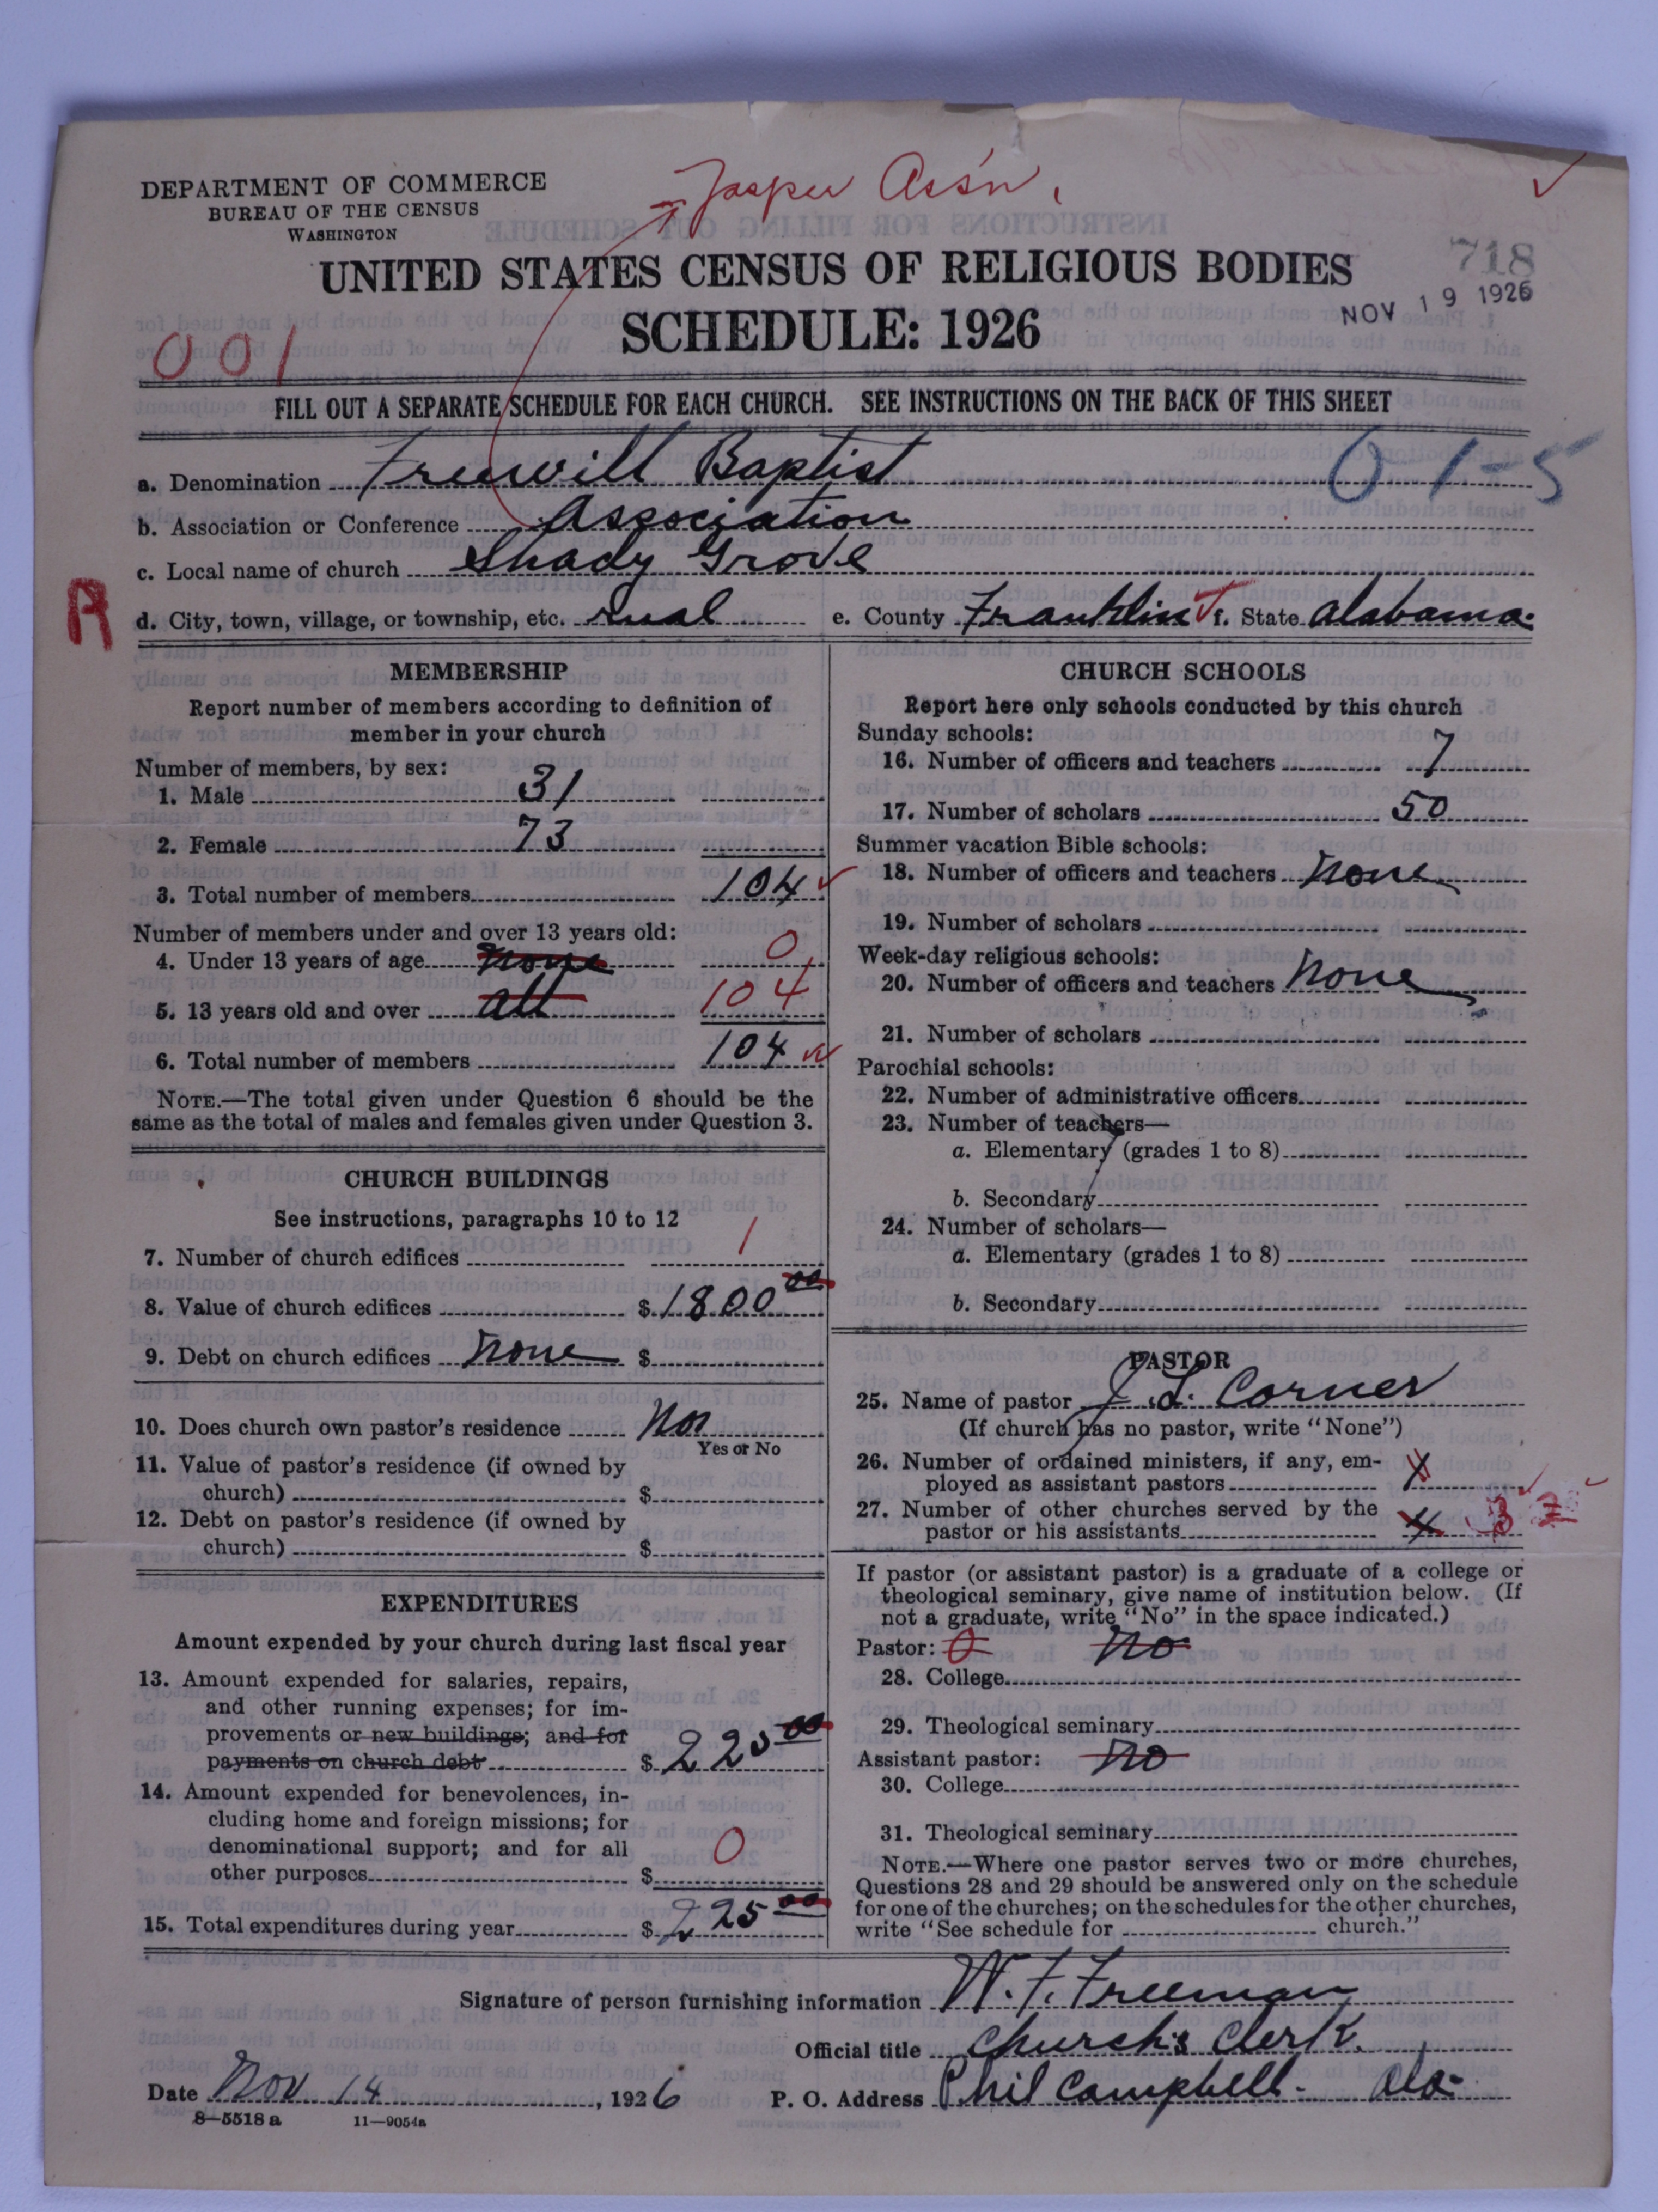 Jasper Ass'n.
DEPARTMENT OF COMMERCE
BUREAU OF THE CENSUS
WASHINGTON
UNITED STATES CENSUS OF RELIGIOUS BODIES
718
NOV 19 1926
SCHEDULE: 1926
001
FILL OUT A SEPARATE SCHEDULE FOR EACH CHURCH. SEE INSTRUCTIONS ON THE BACK OF THIS SHEET
a. Denomination Freewill Baptist 01-5
b. Association or Conference Association
c. Local name of church Shady Grove
R
d. City, town, village, or township, etc. rual e. County Franklin f. State Alabama.
MEMBERSHIP
Report number of members according to definition of
member in your church
Number of members, by sex:
1. Male 31
2. Female 73
3. Total number of members 104
Number of members under and over 13 years old:
4. Under 13 years of age none 0
5. 13 years old and over all 104
6. Total number of members 104
NOTE.—The total given under Question 6 should be the
same as the total of males and females given under Question 3.
CHURCH BUILDINGS
See instructions, paragraphs 10 to 12
7. Number of church edifices 1
8. Value of church edifices $1800 00
9. Debt on church edifices none $
10. Does church own pastor's residence
Yes or No
11. Value of pastor's residence (if owned by
church) $
12. Debt on pastor's residence (if owned by
church) $
EXPENDITURES
Amount expended by your church during last fiscal year
13. Amount expended for salaries, repairs,
and other running expenses; for im-
provements or new buildings; and for
payments on church debt $225 00
14. Amount expended for benevolences, in-
cluding home and foreign missions; for
denominational support; and for all
other purposes $ 0
15. Total expenditures during year $225 00
CHURCH SCHOOLS
Report here only schools conducted by this church
Sunday schools:
16. Number of officers and teachers 7
17. Number of scholars 50
Summer vacation Bible schools:
18. Number of officers and teachers none
19. Number of scholars
Week-day religious schools:
20. Number of officers and teachers none
21. Number of scholars
Parochial schools:
22. Number of administrative officers
23. Number of teachers—
a. Elementary (grades 1 to 8)
b. Secondary
24. Number of scholars—
a. Elementary (grades 1 to 8)
b. Secondary
PASTOR
25. Name of pastor J. L. Corner
(If church has no pastor, write "None")
26. Number of ordained ministers, if any, em-
ployed as assistant pastors
27. Number of other churches served by the
pastor or his assistants 4 3
If pastor (or assistant pastor) is a graduate of a college or
theological seminary, give name of institution below. (If
not a graduate, write "No" in the space indicated.)
Pastor: 0 no
28. College
29. Theological seminary
Assistant pastor: no
30. College
31. Theological seminary
NOTE.—Where one pastor serves two or more churches,
Questions 28 and 29 should be answered only on the schedule
for one of the churches; on the schedules for the other churches,
write "See schedule for church."
Signature of person furnishing information W. F. Freeman
Official title Church's Clerk.
Date Nov 14, 1926 P. O. Address Phil Campbell - Ala-
8—5518 a 11—9054a